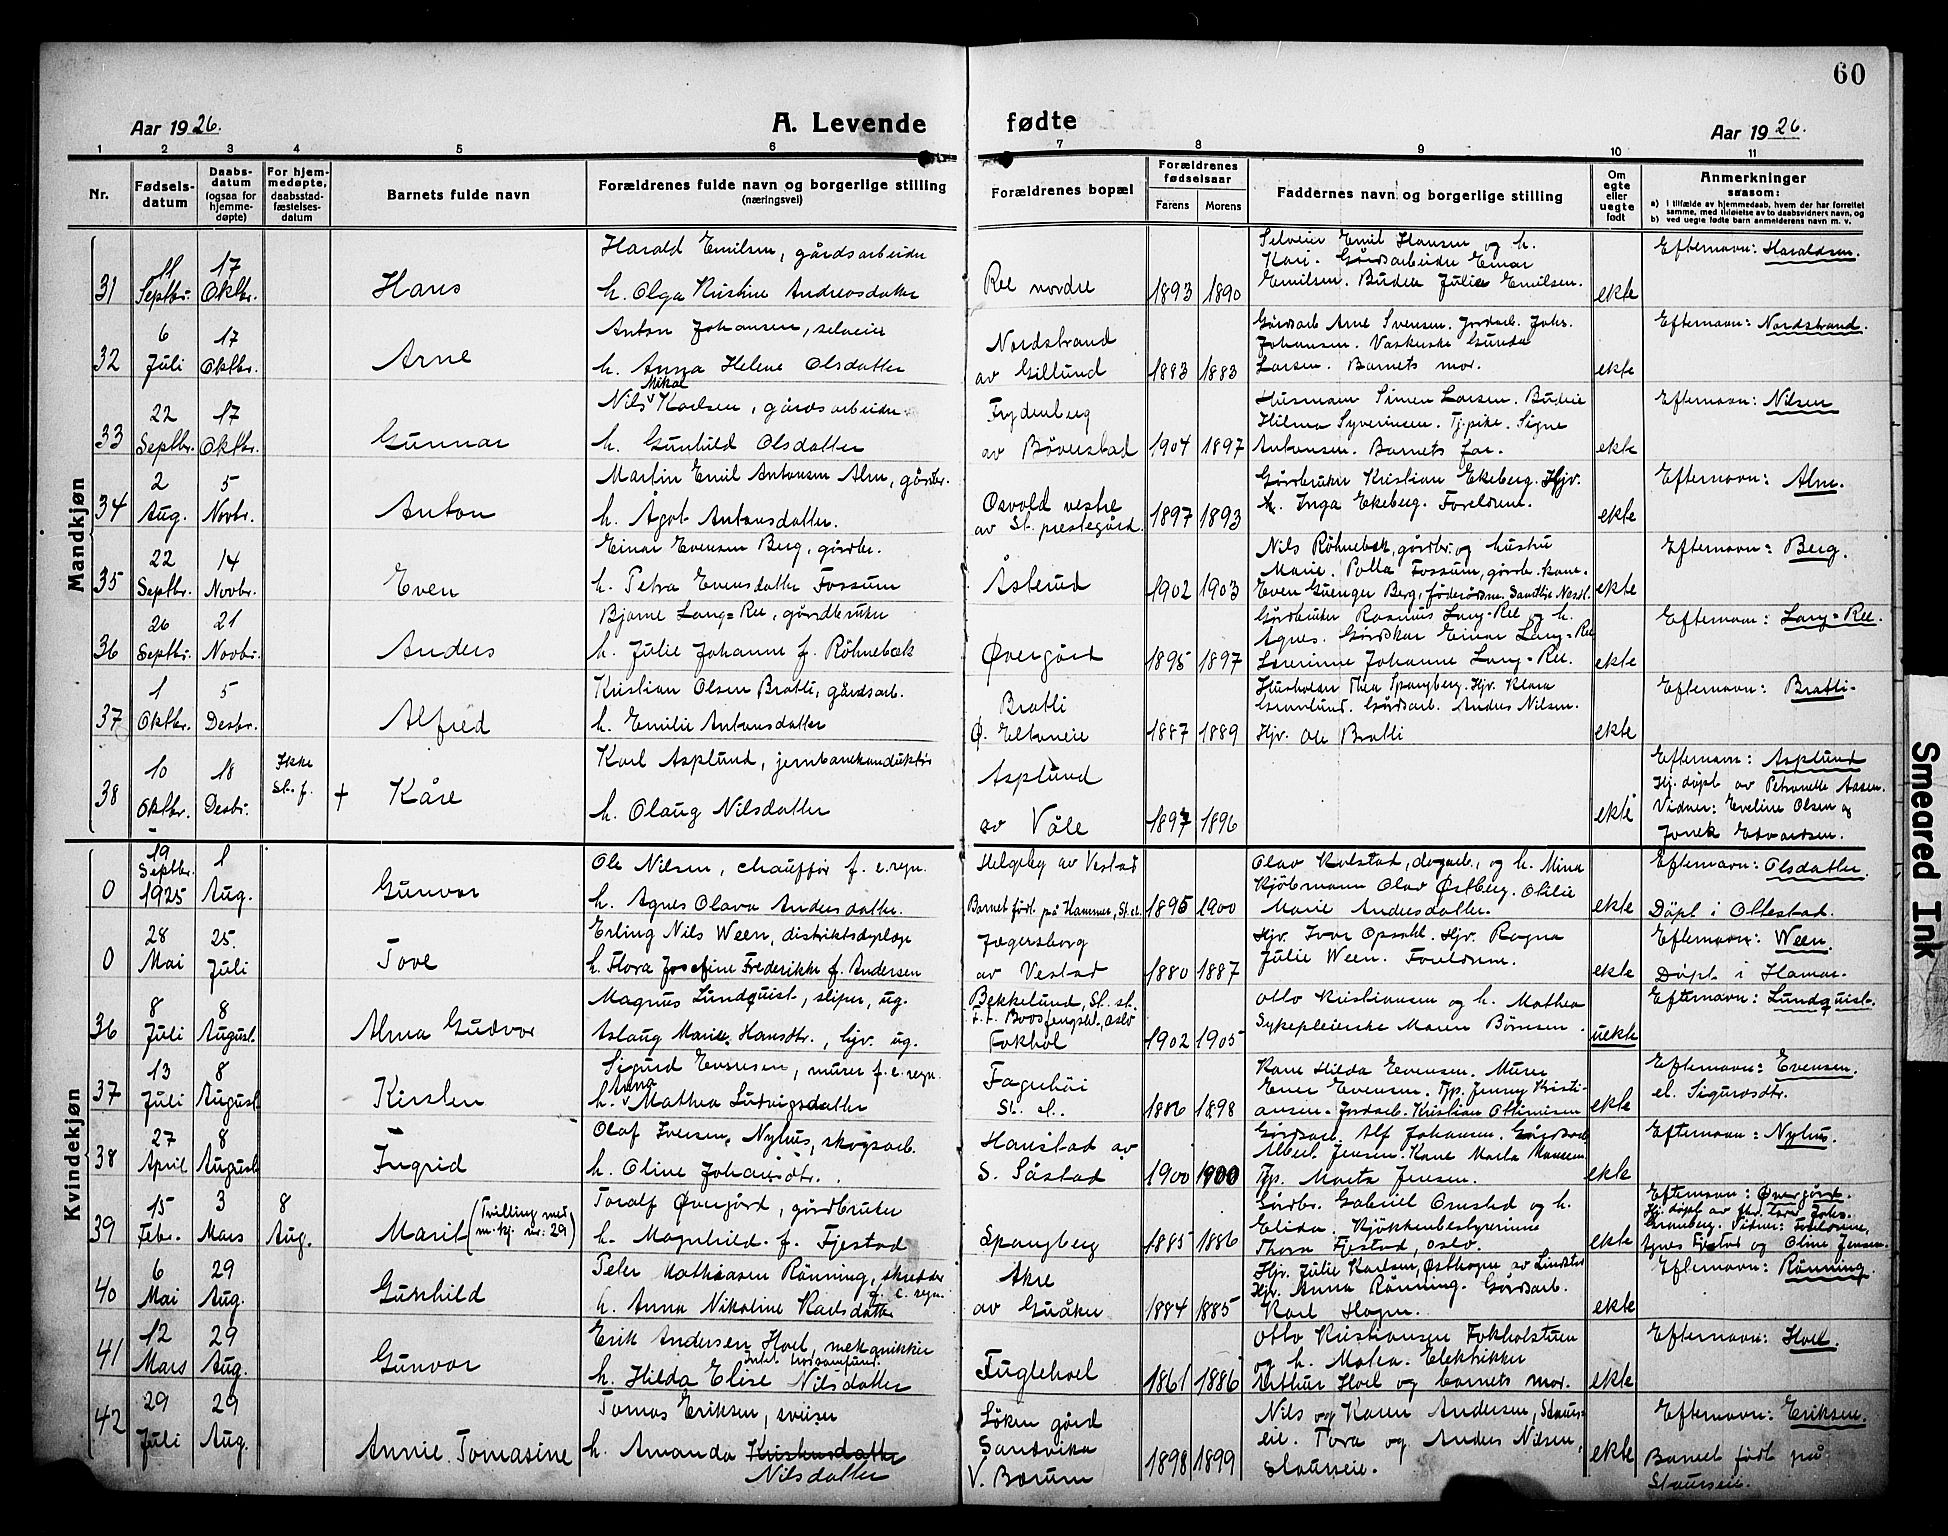 60
Aar 1926. A. Levende fødte Aar 1926.
1 2 3 4 5 6 7 8 9 10 11
Nr. Fødselsdatum Daabsdatum (ogsaa for hjemmedøpte) For hjemmedøpte, daabsstadfæstelsesdatum Barnets fulde navn Forældrenes fulde navn og borgerlige stilling (næringsvei) Forældrenes bopæl Forældrenes fødselsaar Farens Morens Faddernes navn og borgerlige stilling Om egte eller uegte født Anmerkninger saasom:
a) I tilfælde av hjemmedaab, hvem der har forrettet samme, med tilføielse av to daabsvidners navn, og
b) ved uegte fødte barn anmelderens navn m. v.
Mandkjøn
31 11 Septbr. 17 Oktbr. Hans
Harald Emilsen, gårdsarbeider
h. Olga Kristine Andreasdatter
Ree nordre 1893 1890
Selveier Emil Hansen og h.
Kari. Gårdsarbeider Einar
Emilsen. Budeie Julie Emilsen.
ekte Efternavn: Haraldsen.
32 6 Juli 17 Oktbr. Arne
Anton Johansen, selveier
h. Anna Helene Olsdatter
Nordstrand
av Gillund 1883 1883
Gårdsarb. Arne Svensen. Jordarb. Johs.
Johansen. Vaskerske Gunda
Larsen. Barnets mor.
ekte Efternavn: Nordstrand.
33 22 Septbr. 17 Oktbr. Gunnar
Nils Mikal Karlsen, gårdsarbeider
h. Gunhild Olsdatter
Frydenberg
av Bøverstad 1904 1897
Husmann Simen Larsen. Budeie
Hilma Syversen. Tj.pike. Signe
Antonsen. Barnets far.
ekte Efternavn: Nilsen
34 2 Aug. 5 Novbr. Anton
Martin Emil Antonsen Alm, gårdbr.
h. Ågot Antonsdatter.
Osvold vestre
av St. prestegård. 1897 1893
Gårdbruker Kristian Ekeberg. Hjv.
h. Inga Ekeberg. Foreldrene.
ekte Efternavn: Alm.
35 22 Septbr. 14 Novbr. Even
Einar Evensen Berg, gårdbr.
h. Petra Evensdatter Fossum
Åsterud 1902 1903
Nils Røhnebæk, gårdbr. og hustru
Marie. Polla Fossum, gårdbr. kone.
ekte Efternavn: Berg.
36 26 Septbr. 21 Novbr. Anders
Bjarne Lang-Ree, gårdbruker
h. Julie Johanne f. Røhnebæk
Øvergård 1895 1897
Gårdbruker Rasmus Lang-Ree og h.
Agnes. Gårdskar Einar Lang-Ree
Lærerinne Johanne Lang-Ree.
ekte Efternavn: Lang-Ree.
37 1 Oktbr. 5 Desbr. Alfred
Kristian Olsen Bratli, gårdsarb.
h. Emilie Antonsdatter
Bratli
Ø. Eltoneie 1887 1889
Husholder Thea Spangberg. Hjv. Klara
Granlund. Gårdsarb. Anders Nilsen.
Hjv. Ole Bratli
ekte Efternavn: Bratli.
38 10 Oktbr. 18 Desbr. Ikke St. f. + Kåre
Karl Asplund, jernbanekonduktør
h. Olaug Nilsdatter
Asplund
av Våle 1897 1896
ekte Efternavn: Asplund
Hj. døpt av Petronelle Aasen.
Vidner: Eveline Olsen og
Edvardsen.
Kvindekjøn
0 19 Septbr. 1925 1 Aug. Gunvor
Ole Nilsen, chauffør f. e. regn.
h. Agnes Olava Andersdatter.
Helgeby av Vestad
Barnet født på Hammer, St. al. 1895 1900
Olav Kulstad, dagarb., og h. Mina
Kjøbmann Olav Østberg. Otilie
Marie Andersdatter.
ekte Efternavn: Olsdatter.
Døpt i Ottestad.
0 28 Mai 25. Juli Tove
Erling Nils Ween, distriktsdyrlæge
h. Flora Josefine Frederikke f. Andersen
Jægersborg
av Vestad 1880 1887
Hjv. Ivar Opsahl. Hjv. Ragna
Julie Ween. Foreldrene.
ekte Efternavn: Ween.
Døpt i Hamar.
36 8 Juli 8 August. Alma Gudvor
Magnus Lundquist, sliper, ug.
Aslaug Marie Hansdtr., hjv. ug.
Bekkelund, St. st.
Fokhol 1902 1905
Otto Kristiansen og h. Mathea
Sykepleierske Maren Børnsen.
uekte Efternavn: Lundquist.
37 13 Juli 8 August. Kirsten
Sigurd Evensen, murer f. e. regn.
h. Anna Mathea Ludvigsdatter
Fagerhøi
St. al. 1886 1898
Kone Hilda Evensen. Murer
Einar Evensen. Tjp. Jenny Kristi-
ansen. Jordarb. Kristian Ottinisen
ekte Efternavn: Evensen.
el. Sigurdsdtr.
38 27 April 8 August. Ingrid
Olaf Iversen, Nyhus, skogsarb.
h. Oline Johansdtr.
Honstad av
S. Såstad 1900 1900
Gårdsarb. Alf Johansen. Gårdsarb.
Albert Jensen. Kone Marta Hansen
Tjp. Marta Jensen.
ekte Efternavn: Nyhus.
39 15 Febr. 3 Mars 8 Aug. Marit (Tvilling med m.kj. nr. 29)
Toralf Øvergård, gårdbruker
h. Magnhild f. Fjestad
Spangberg 1885 1886
Gårdbr. Gabriel Ormstad og h.
Elida. Kjøkkenbestyrerinne
Thora Fjestad, Oslo.
ekte Efternavn: Øvergård.
Granberg. Vidner: Foreldrene,
Agnes Fjestad og Oline Jensen.
40 6 Mai 29 Aug. Gunhild
Peter Mathiasen Rønning, skredder f. e. regn.
h. Anna Nikoline Karlsdatter
Åkre
av Guåker 1884 1885
Hjv. Julie Karlsen, Østhagen av Lindstad
Hjv. Anna Rønning. Gårdsarb.
Karl Hagen.
ekte Efternavn: Rønning.
41 12 Mars 29 Aug. Gunvor
Erik Andersen Hoel, mekanikker
h. Hilda Elise Nilsdatter
Fuglehoel 1861 1886
Otto Kristiansen Fokholstuen
og h. Matea. Elektrikker
Arthur Hoel og barnets mor.
ekte Efternavn: Hoel.
42 29 Juli 29 Aug. Annie Tomasine
Tomas Eriksen, sveiser
h. Amanda Kristiansdatter
Nilsdatter
Løken gård
Sandvika
V. Bærum 1898 1899
Nils og Karen Andersen, Staurs-
eie. Tora og Anders Nilsen,
Staurseie.
ekte Efternavn: Eriksen.
Barnet født på
Staurseie.
Smeared Ink